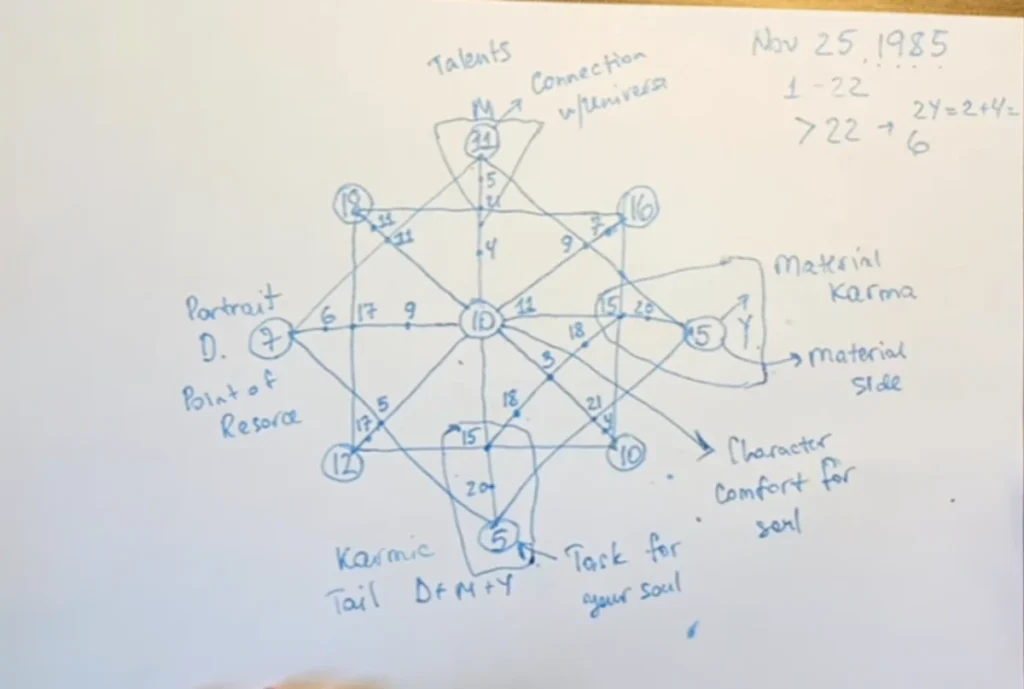 Nov 25, 1985
1 - 22
> 22 → 24 = 2+4 =
6
Talents
Connection
w/Univers
M
11
5
21
4
18
11
11
16
7
9
Portrait
D.
Point of
Resorce
7
6
17
9
10
11
15
20
5
Y
Material
Karma
Material
side
18
3
18
5
17
12
15
20
5
21
4
10
Character
comfort for
soul
Karmic
Tail D+M+Y
Task for
your soul